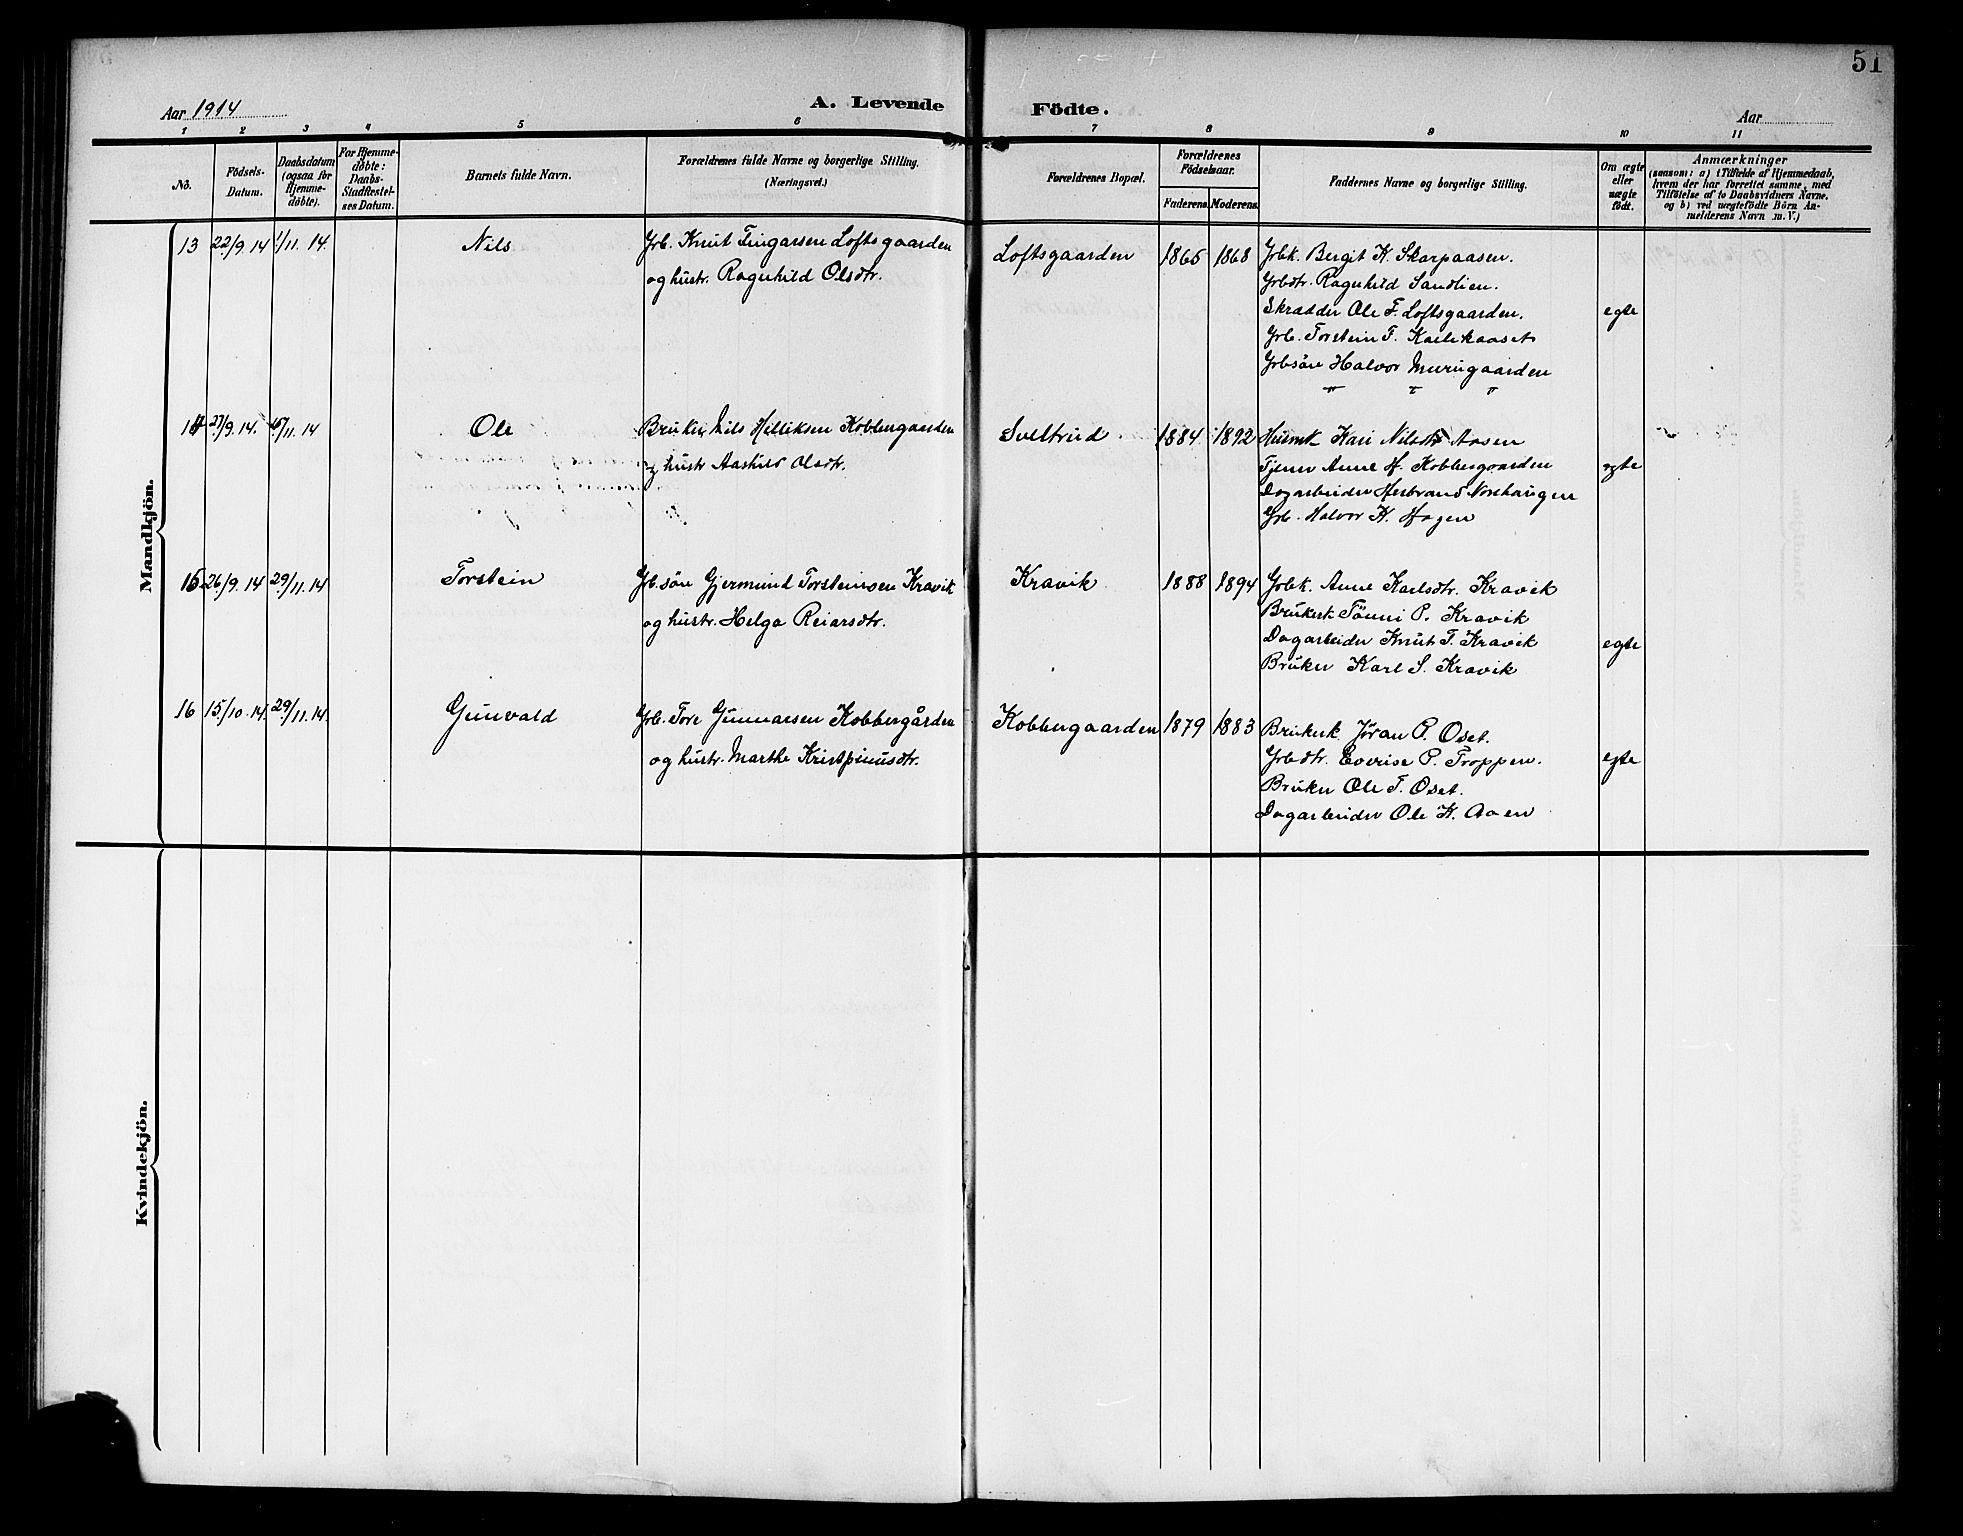 51
Aar 1914
A. Levende Födte.
Aar
1 2 3 4 5 6 7 8 9 10 11
No.
Födsels-Datum.
Daabsdatum (ogsaa for Hjemmedöbte).
For Hjemmedöbte: Daabs-Stadfæstelses Datum.
Barnets fulde Navn.
Forældrenes fulde Navne og borgerlige Stilling.
(Næringsvei.)
Forældrenes Bopæl.
Forældrenes Födselsaar.
Faderens. Moderens.
Faddernes Navne og borgerlige Stilling.
Om ægte eller uægte födt.
Anmærkninger
(saasom: a) i Tilfælde af Hjemmedaab,
hvem der har forrettet samme, med
Tilföielse af to Daabsvidners Navne,
og b) ved uægtefödte Börn An-
melderens Navn m.V.)
Mandkjön.
13 22/9.14 1/11.14. Nils Grb. Knut Fingarsen Loftsgaarden Loftsgaarden 1865 1868 Grbk. Bergit K. Skarpaasen.
og hustr. Ragnhild Olsdtr. Grbdtr. Ragnhild Sandlien.
Skrædder Ole F. Loftsgaarden. egte
Grb. Torstein F. Karlikaaset
Grbsön Halvor Murugaarden
14 27/9.14. 15/11.14 Ole Bruker Nils Helliksen Kobbergaarden Sveltrud 1884 1892 Husmk Kari Nilsdtr Aasen
og hustr Aashild Olsdtr. Tjener Anne H. Kobbergaarden egte
Dagarbeider Herbrand Norehaugen
Grb. Halvor K. Hagen
15 26/9.14 29/11.14 Torstein Grb.sön Gjermund Torsteinsen Kravik Kravik 1888 1894 Grbk. Anne Karlsdtr. Kravik
og hustr. Helga Reiarsdtr. Brukerk Tönni P. Kravik
Dagarbeider Knut T. Kravik egte
Bruker Karl S. Kravik
16 15/10.14. 29/11.14. Gunvald Grb. Tore Gunnarsen Kobbergården Kobbergaarden 1879 1883 Brukerk. Jöran P. Oset.
og hustr. Marthe Kristpinusdtr. Grbdtr. P. Troppen. egte
Bruker Ole T. Oset.
Dagarbeider Ole K. Aasen
Kvindekjön.